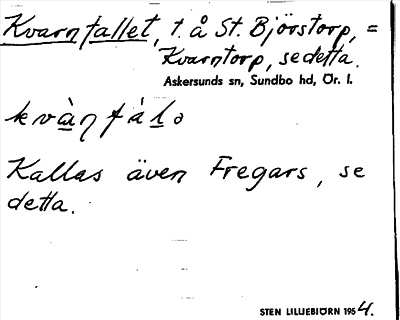 Kvarnfallet, t. å St. Björstorp, =
Kvarntorp, se detta.
Askersunds sn, Sundbo hd, Ör. l.
kvàṇfàlo
Kallas även Fregars, se
detta.
STEN LILLIEBJÖRN 1954.